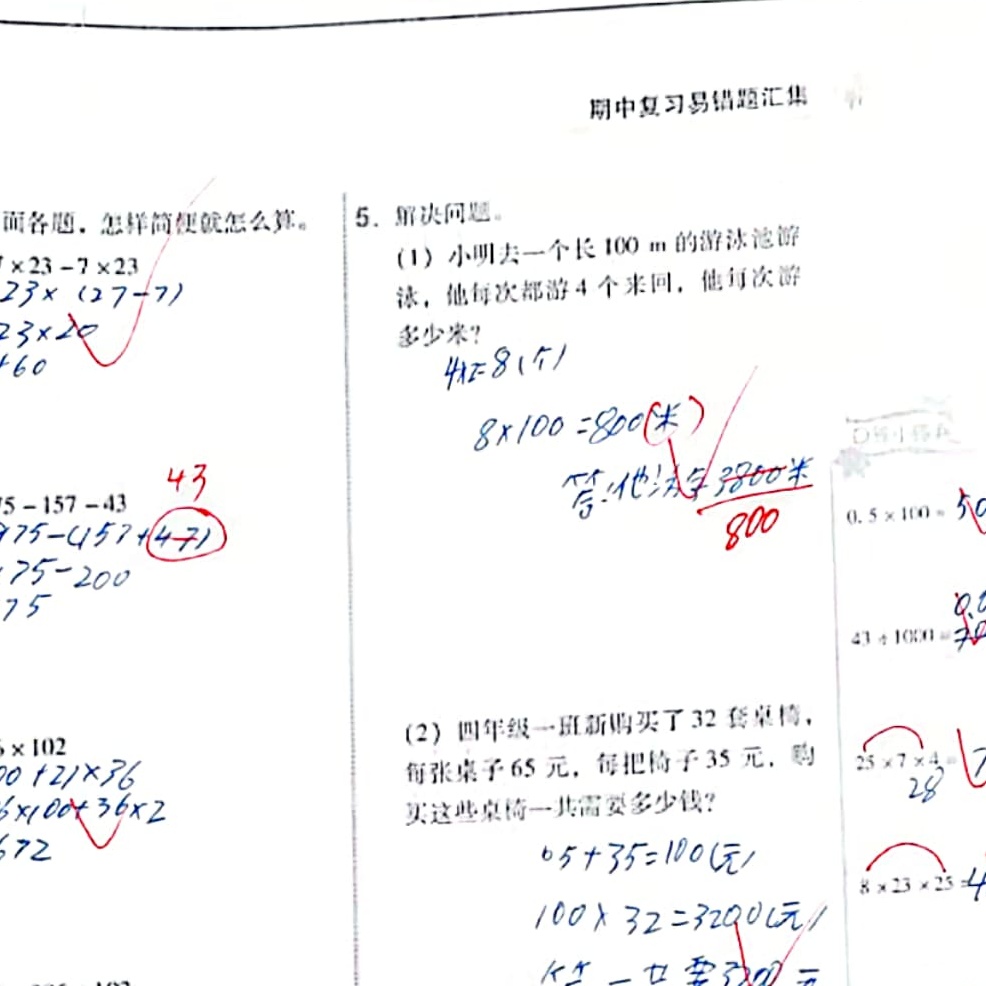 期中复习易错题汇集
面各题，怎样简便就怎么算。
×23-7×23
23×(27-7)
23×20
460
43
75-157-43
975-(157+47)
75-200
75
6×102
00+2)×36
6×100+36×2
672
5. 解决问题。
(1) 小明去一个长 100 m 的游泳池游
泳，他每次都游 4 个来回，他每次游
多少米？
4×2=8(个)
8×100=800(米)
答:他 3800米
800
(2) 四年级一班新购买了 32 套桌椅，
每张桌子 65 元，每把椅子 35 元，购
买这些桌椅一共需要多少钱？
65+35=100(元)
100×32=3200(元)
答 一共要3200元
0.5×100= 50
43÷1000=
25×7×4=
28
8×23×25=4